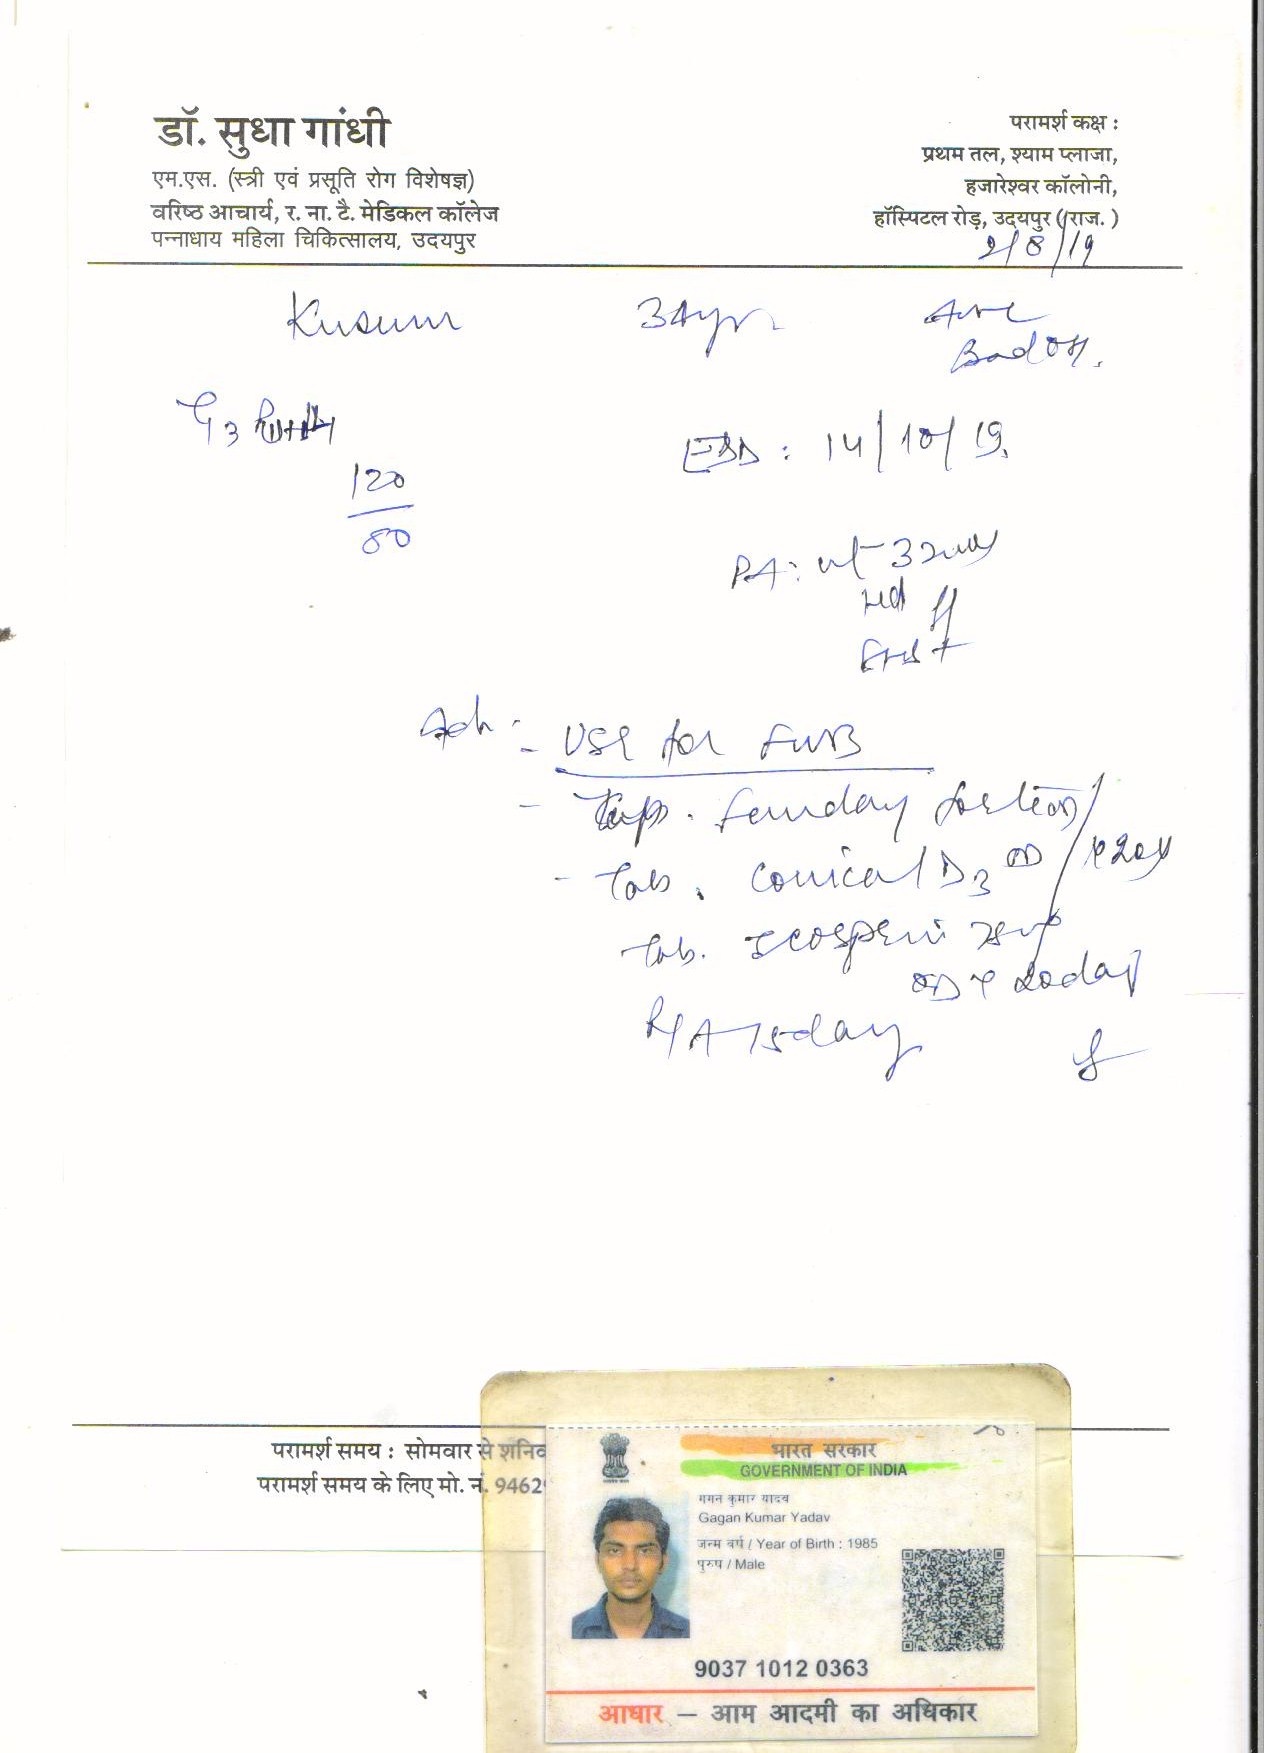 डॉ. सुधा गांधी
एम.एस. (स्त्री एवं प्रसूति रोग विशेषज्ञ)
वरिष्ठ आचार्य, र. ना. टै. मेडिकल कॉलेज
पन्नाधाय महिला चिकित्सालय, उदयपुर
परामर्श कक्ष :
प्रथम तल, श्याम प्लाजा,
हजारेश्वर कॉलोनी,
हॉस्पिटल रोड़, उदयपुर (राज.)
2/8/19
Kusum 34yr
G3
EDD : 14/10/19.
120
80
PA: ut 32
Adv :- USG for FWB
- Cap. forte OD
- Tab. D3 OD
Tab. Ecosprin 75
OD x 20day
R/A 15day
परामर्श समय : सोमवार से शनिव
परामर्श समय के लिए मो. नं. 9462
भारत सरकार
GOVERNMENT OF INDIA
गगन कुमार यादव
Gagan Kumar Yadav
जन्म वर्ष / Year of Birth : 1985
पुरुष / Male
9037 1012 0363
आधार – आम आदमी का अधिकार